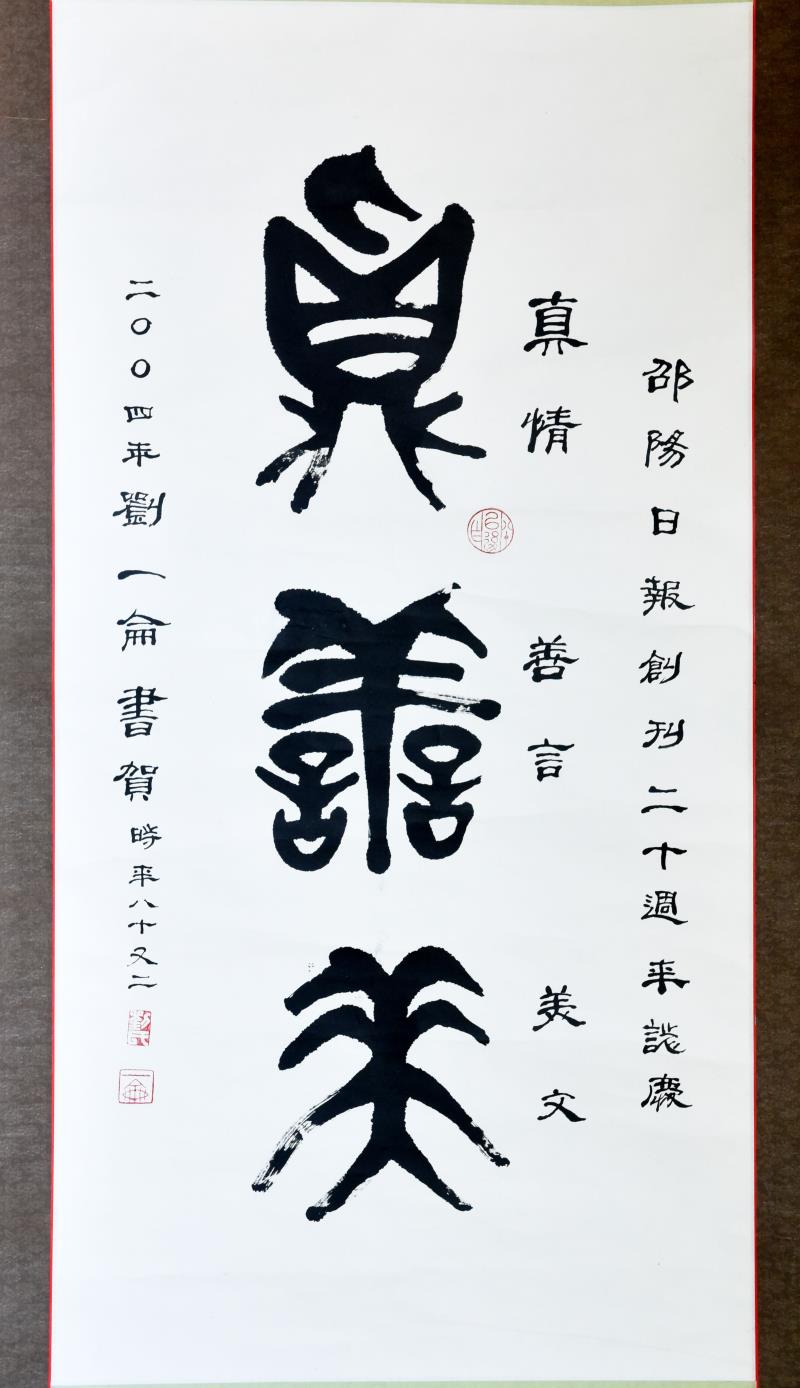 邵陽日報創刊二十週年誌慶
真情
善言
美文
真善美
二〇〇四年劉一侖書賀時年八十又二